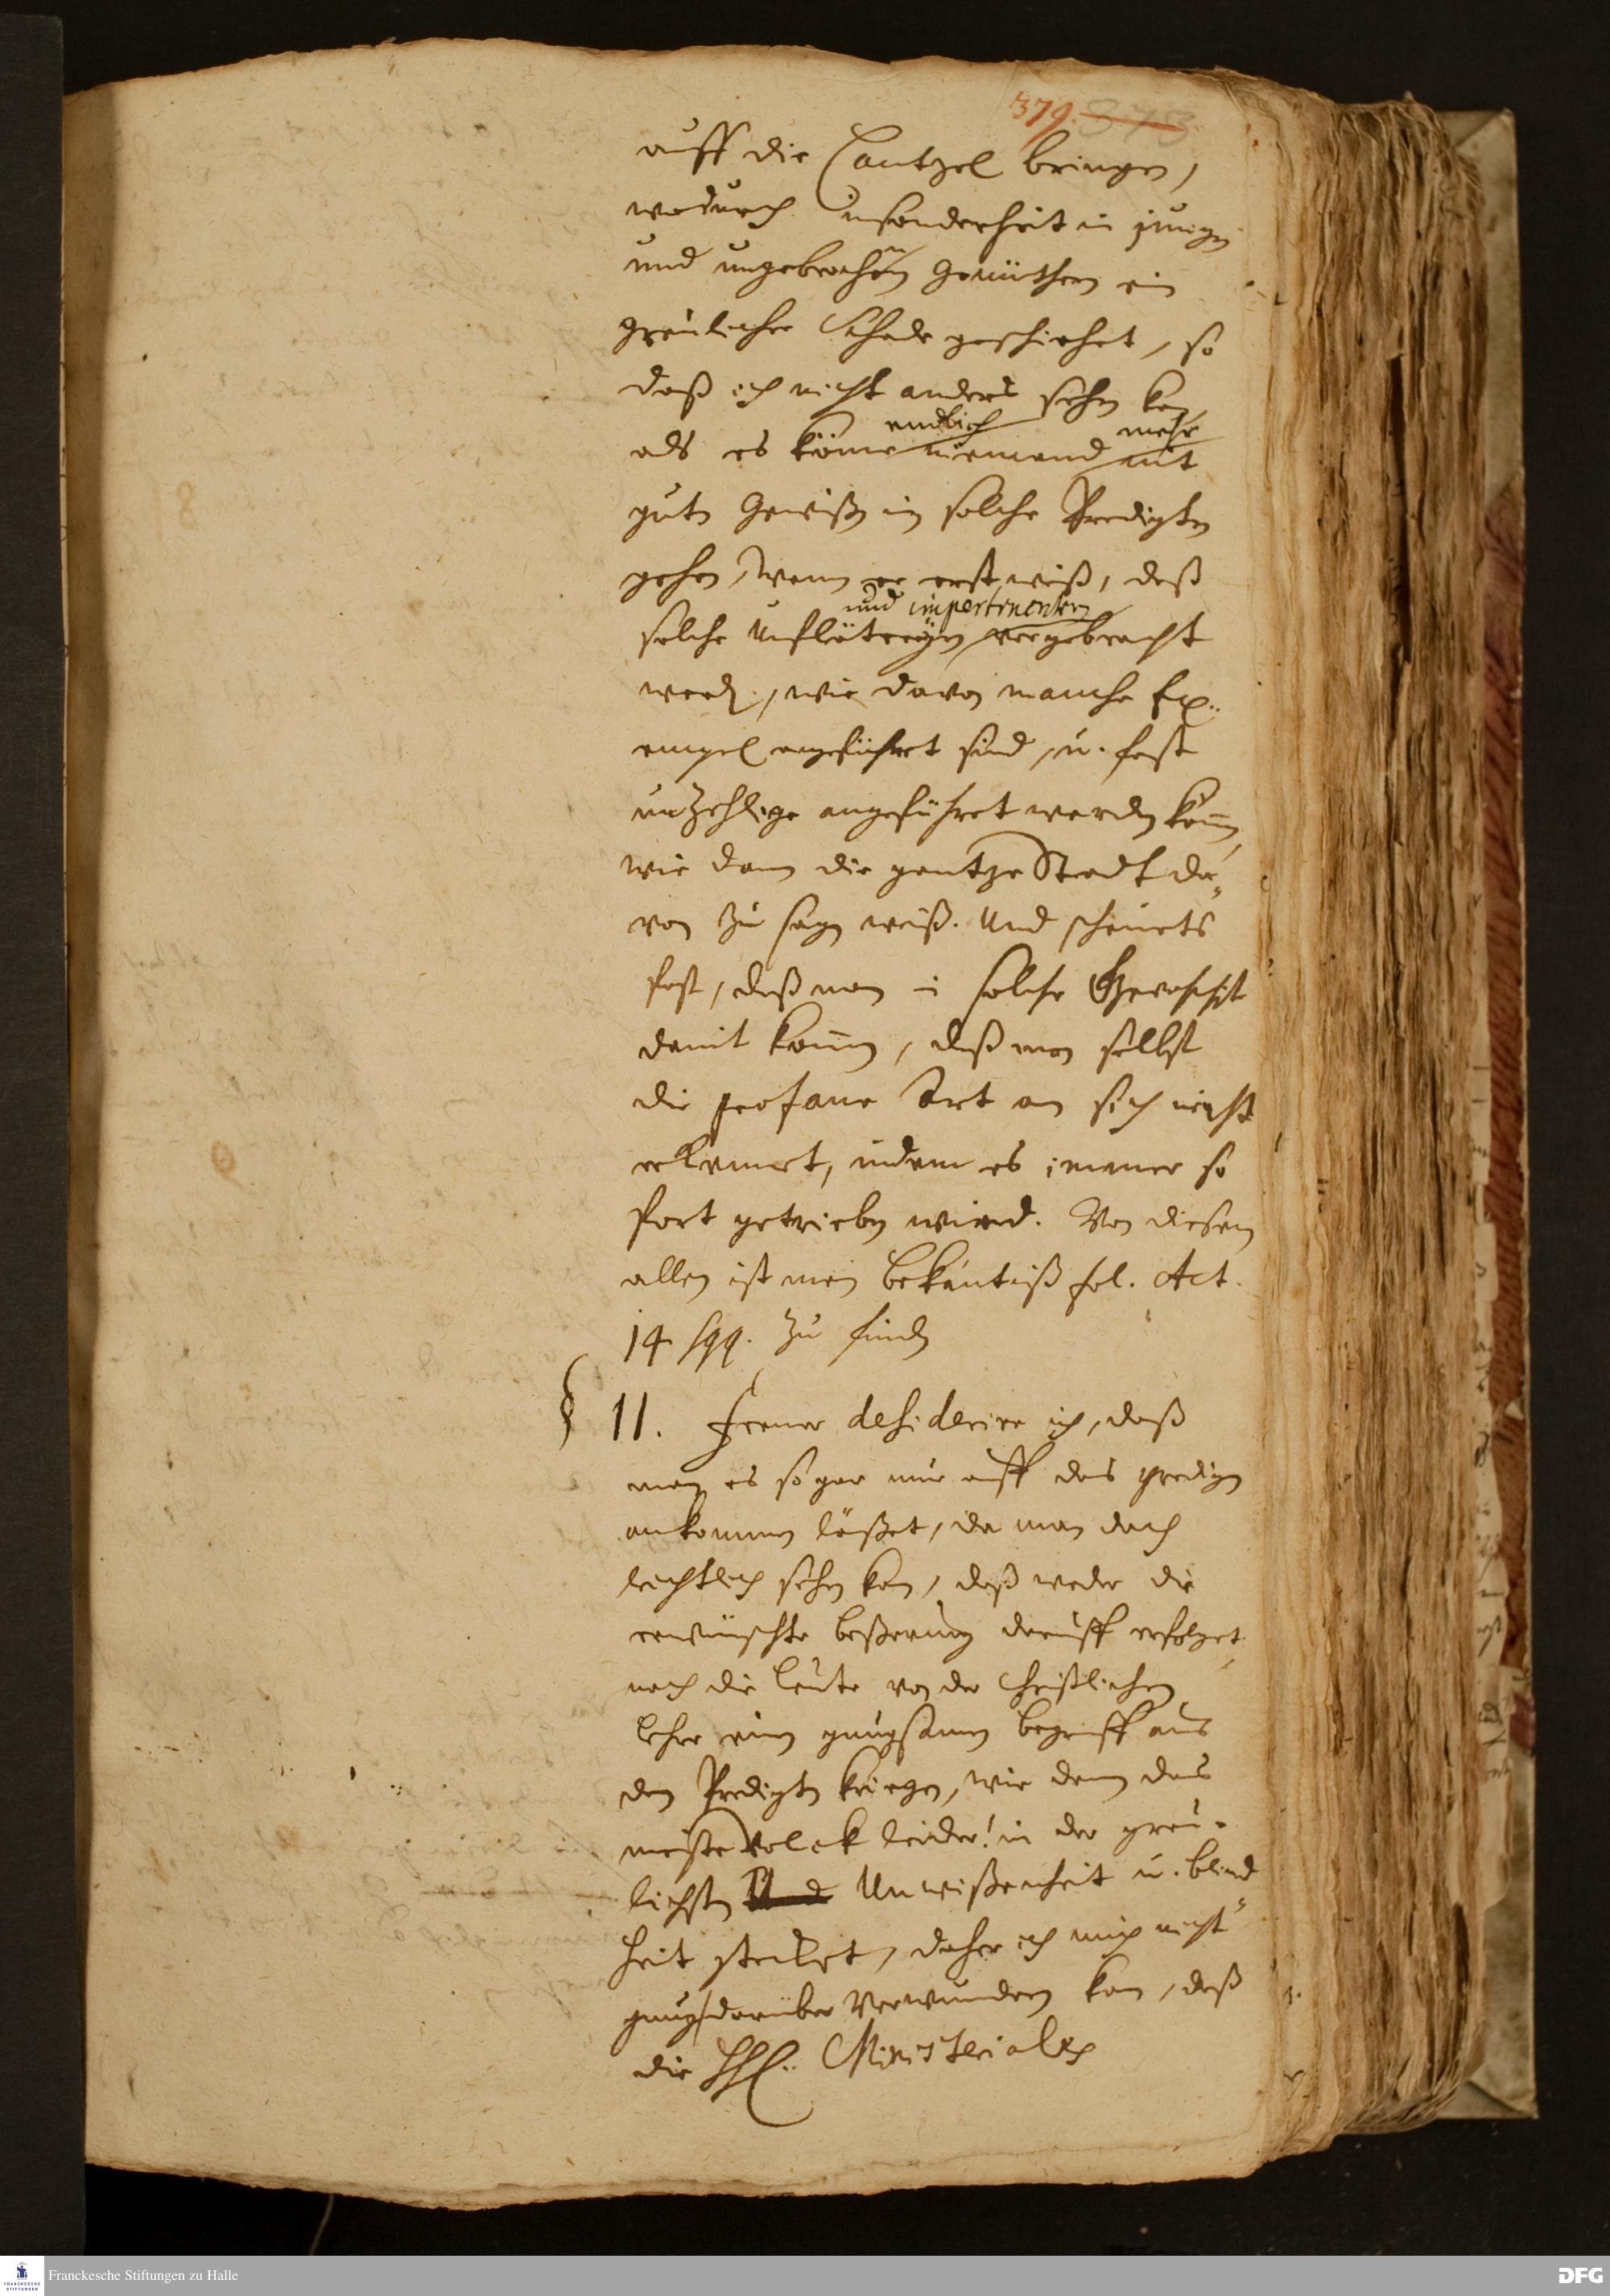 379. 373.
auff die Cantzel bringen,
wodurch insonderheit in jungen
und ungebrochenen Gemüthern ein
greulicher Schade geschiehet, so
daß ich nicht anders sehen kan,
endlich mehr
als es könne niemand mit
guten Gewißen in solche Predigten
gehen, wenn er erst weiß, daß
und impertinentien
solche Unflätereyen vorgebracht
werden, wie davon manche Ex-
empel angeführet sind, u. fast
unzehlige angeführet werden können,
wie dann die gantze Stadt da-
von zu sagen weiß. Und scheinets
fast, daß man in solche Gewohnheit
damit kommen, daß man selbst
die profane Art an sich nicht
erkennet, indem es immer so
fort getrieben wird. Von diesem
allen ist mein bekäntniß fol. Act.
14 sqq. zu finden
§ 11. Ferner desiderire ich, daß
man es so gar nur auff das predigen
ankommen läßet, da man doch
leichtlich sehen kan, daß weder die
erwünschte beßerung darauff erfolget,
noch die leute von der Christlichen
lehre einen gnugsamen begriff aus
den Predigten kriegen, wie denn das
meiste Volck leider! in der greu-
lichsten Unwißenheit u. blind-
heit stecket, daher ich mich nicht
gnug darüber verwundern kan, daß
die HH. Ministeriales
Franckesche Stiftungen zu Halle
FRANCKESCHE STIFTUNGEN
DFG